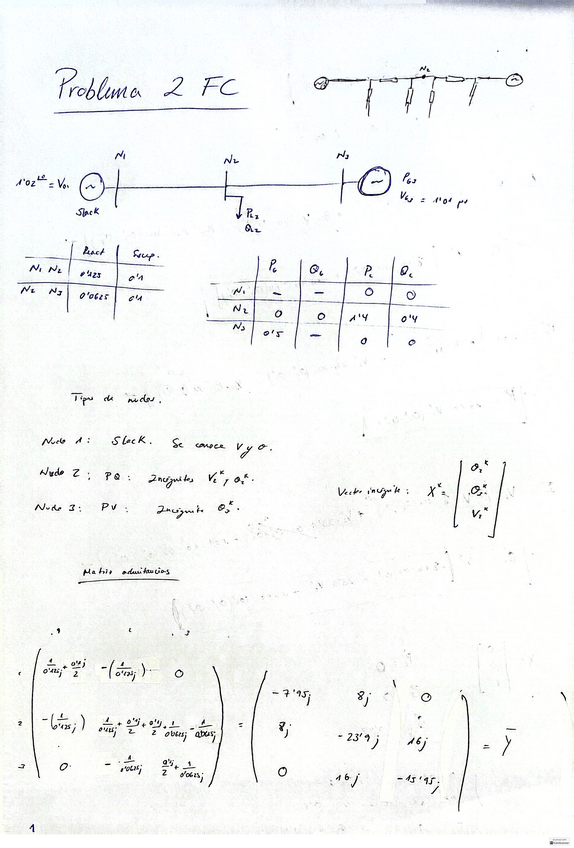 Problema 2 FC
N2
N1
N2
N3
1'02 = V01
Slack
PG3
VG3 = 1'01 pu
PL2
QL2
React
N1 N2 0'125 0'1
N2 N3 0'0625 0'1
PG QG PL QL
N1 — — 0 0
N2 0 0 1'4 0'4
N3 0'5 — 0 0
Tipos de nudos.
Nudo 1: Slack. Se conoce V y θ.
Nudo 2: PQ: Incógnitas V2^k, θ2^k.
Nudo 3: PV: Incógnita θ3^k.
Vector incógnita: X^k = [ θ2^k
θ3^k
V2^k ]
Matriz admitancias
1 2 3
1 1/0'125j + 0'1j/2 -(1/0'125j) 0
2 -(1/0'125j) 1/0'125j + 0'1j/2 + 0'1j/2 + 1/0'0625j - 1/0'0625j
3 0 - 1/0'0625j 0'1j/2 + 1/0'0625j
= -7'95j 8j 0
8j -23'9j 16j
0 16j -15'95j
= Y
1